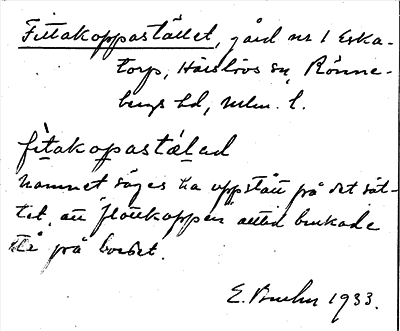 Fittakoppastället, gård nr 1 Eska-
torp, Härslövs sn, Rönne-
bergs hd, Mlm. l.
fìtakopastæ̀lad
Namnet säges ha uppstått på det sät-
tet, att flottkoppen alltid brukade
stå på bordet.
E. 1933.